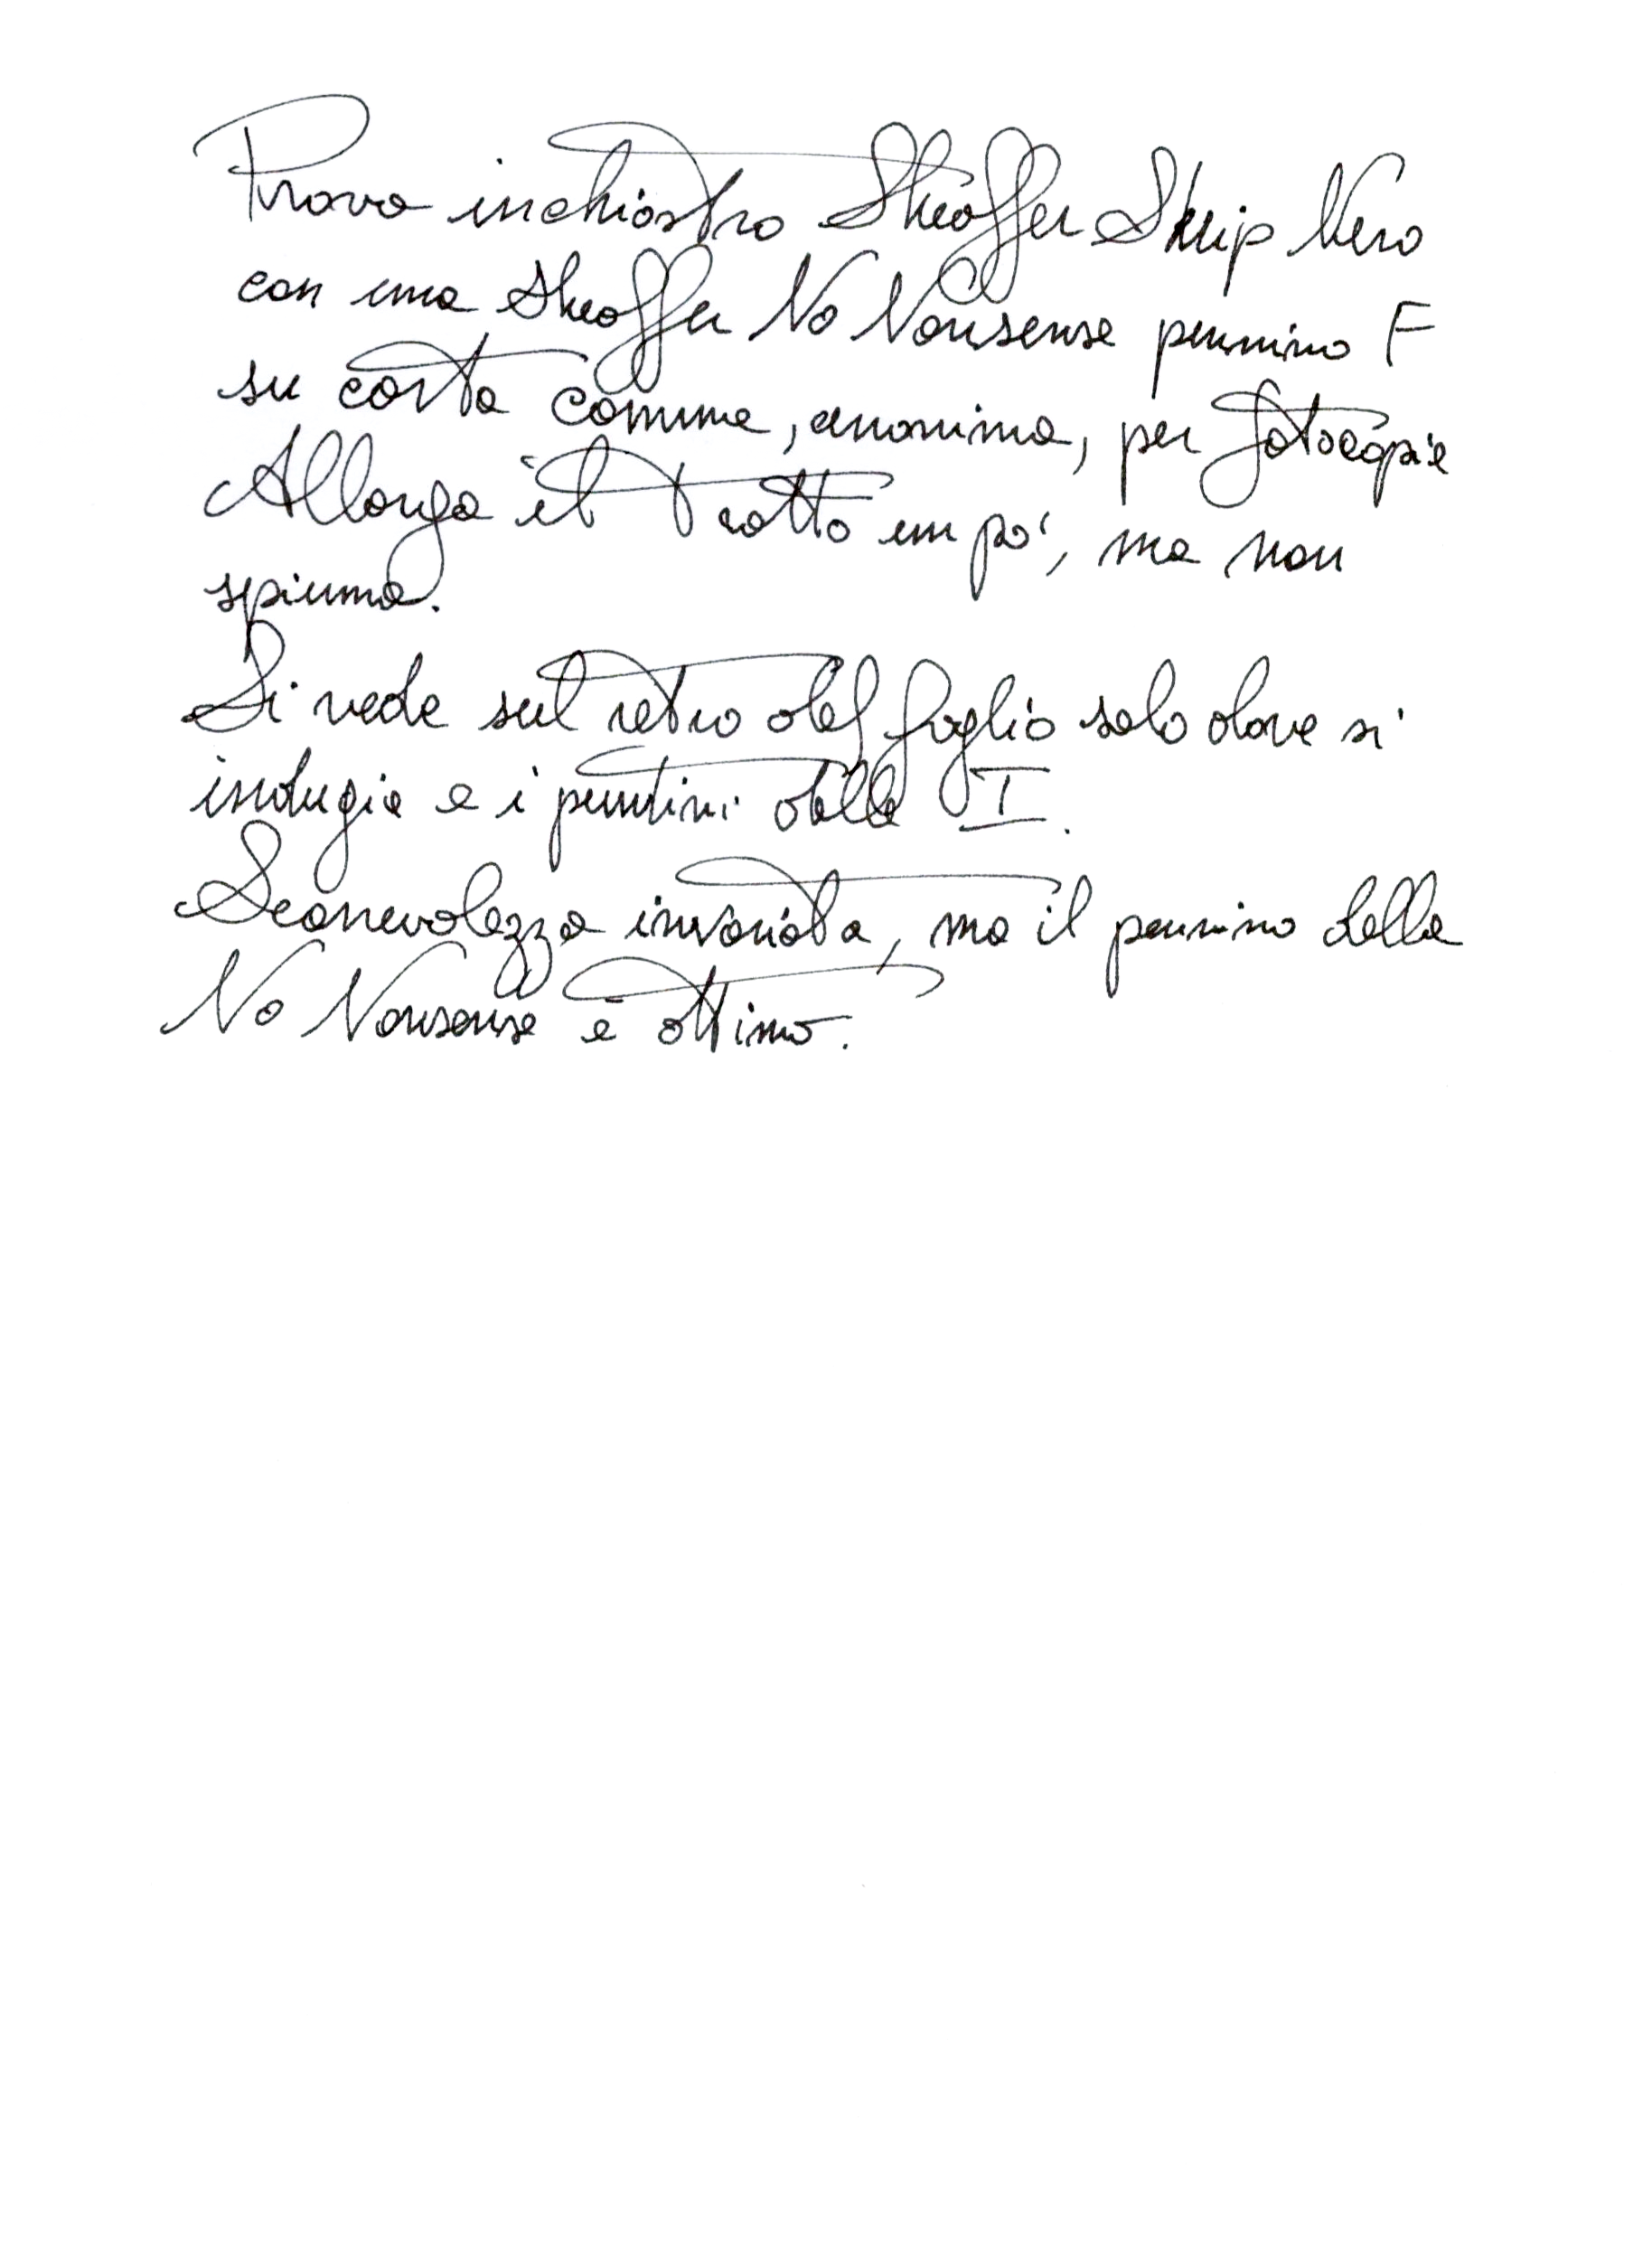 Prova inchiostro Sheaffer Skrip Nero
con una Sheaffer No Nonsense pennino F
su carta comune, anonima, per fotocopie
Allarga il tratto un po', ma non
spiuma.
Si vede sul retro del foglio solo dove si
indugia e i puntini delle I.
Scorrevolezza invariata, ma il pennino della
No Nonsense è ottimo.